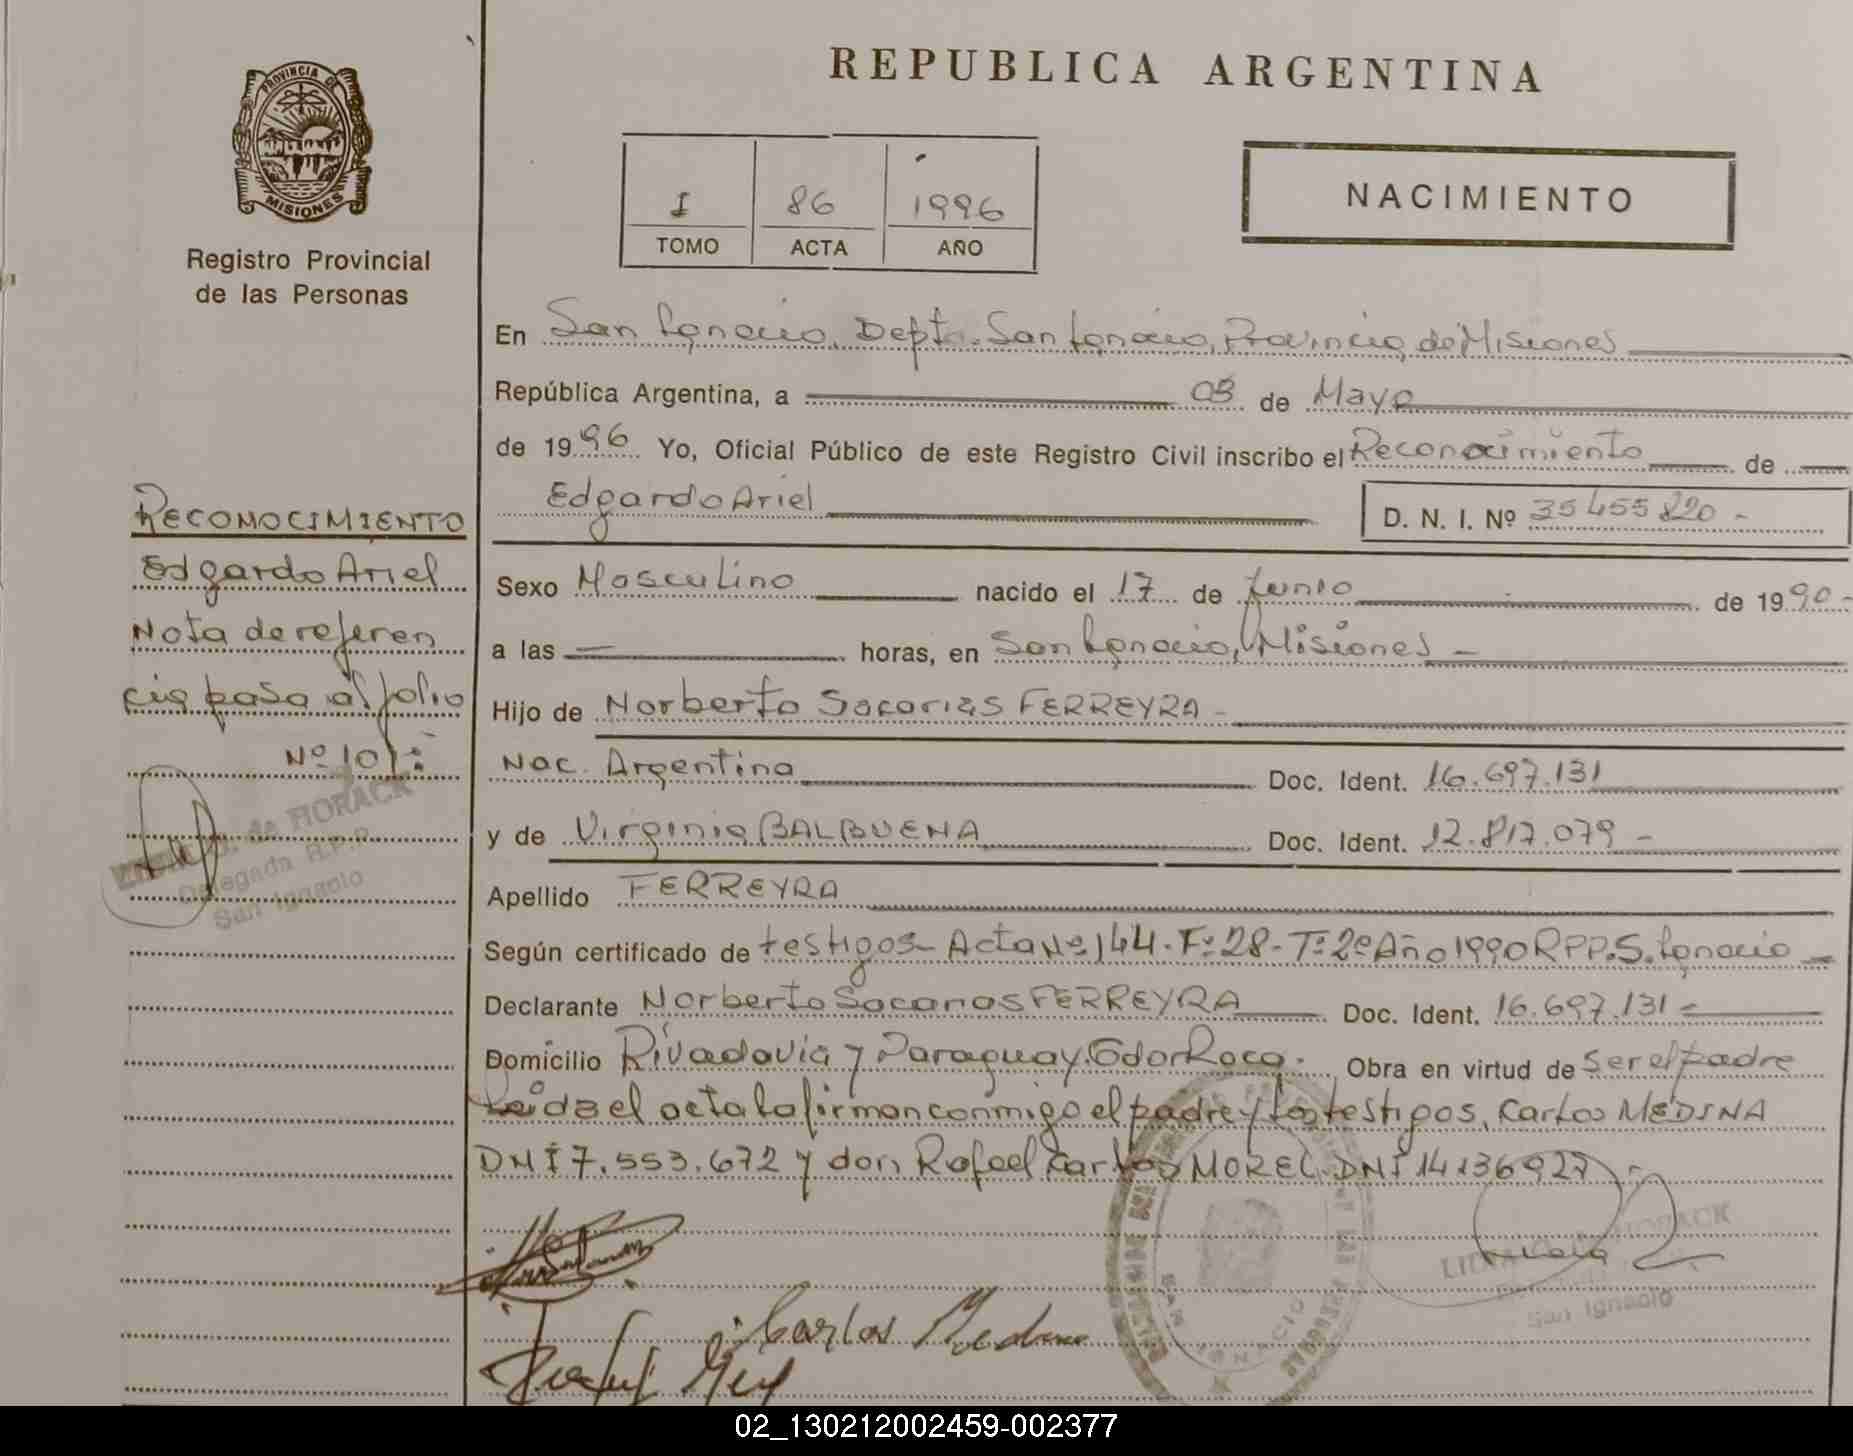 PROVINCIA DE
MISIONES
Registro Provincial
de las Personas
REPUBLICA ARGENTINA
I 86 1996
TOMO ACTA AÑO
NACIMIENTO
En San Ignacio, Depto. San Ignacio, Provincia de Misiones
República Argentina, a 03 de Mayo
de 1996 Yo, Oficial Público de este Registro Civil inscribo el Reconocimiento de
Edgardo Ariel D. N. I. Nº 35455820 -
Sexo Masculino nacido el 17 de Junio de 1990-
a las — horas, en San Ignacio, Misiones -
Hijo de Norberto Sacarias FERREYRA -
Nac. Argentina Doc. Ident. 16.697.131
y de Virginia BALBUENA Doc. Ident. 12.817.079 -
Apellido FERREYRA
Según certificado de testigos- Acta Nº 144. Fº 28- Tº 2º Año 1990 RPP. S. Ignacio
Declarante Norberto Sacarias FERREYRA Doc. Ident. 16.697.131 -
Domicilio Rivadavia y Paraguay. Gdor Roca. Obra en virtud de ser el padre
Leida el acta la firman conmigo el padre y los testigos, Carlos MEDINA
DNI 7.553.672 y don Rafael Carlos MOREL DNI 14136927 -
RECONOCIMIENTO
Edgardo Ariel
Nota de referen
cia pasa al folio
Nº 101
de FIORACK
Delegada R.P.P.
San Ignacio
Carlos Medina
SAN IGNACIO
FIORACK
San Ignacio
02_130212002459-002377